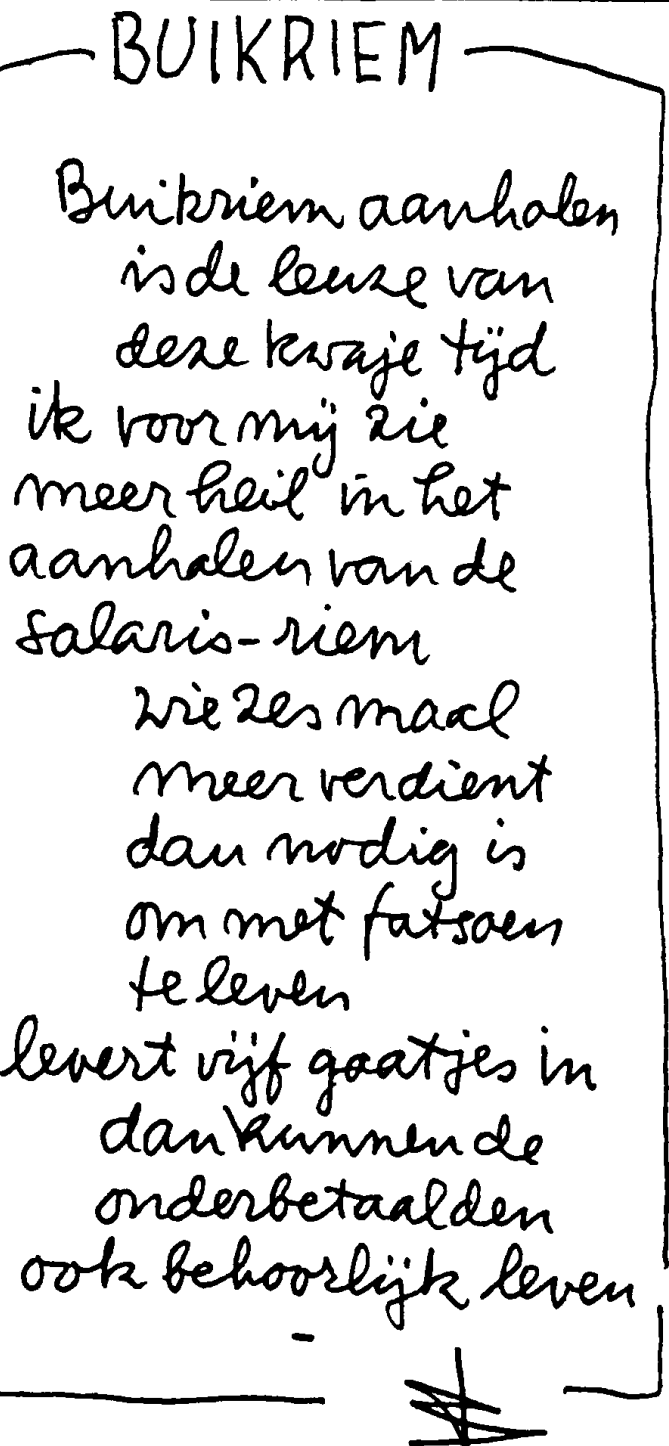 BUIKRIEM
Buikriem aanhalen
is de leuze van
deze kwaje tijd
ik voor mij zie
meer heil in het
aanhalen van de
salaris-riem
wie zes maal
meer verdient
dan nodig is
om met fatsoen
te leven
levert vijf gaatjes in
dan kunnen de
onderbetaalden
ook behoorlijk leven
-